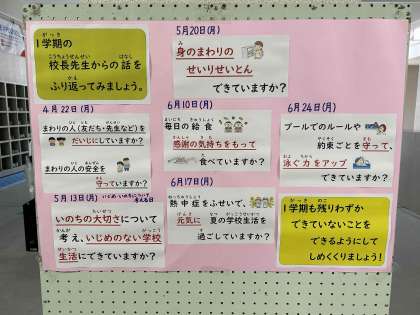 1学期の
校長先生からの話を
ふり返ってみましょう。
4月22日(月)
まわりの人(友だち・先生など)を
だいじにしていますか？
まわりの人の安全を
守っていますか？
5月13日(月)
いのちの大切さについて
考え、いじめのない学校
生活にできていますか？
5月20日(月)
身のまわりの
せいりせいとん
できていますか？
6月10日(月)
毎日の給食
感謝の気持ちをもって
食べていますか？
6月17日(月)
熱中症をふせいで、
元気に夏の学校生活を
過ごしていますか？
6月24日(月)
プールでのルールや
約束ごとを守って、
泳ぐ力をアップ
できていますか？
1学期も残りわずか
できていないことを
できるようにして
しめくくりましょう！